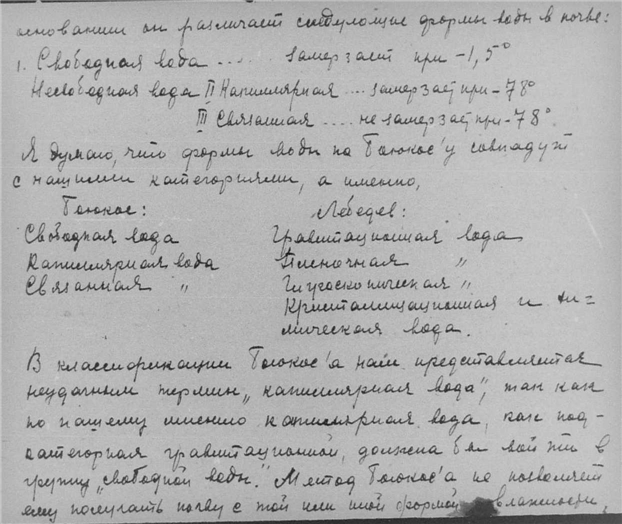 основании он различает следующие формы воды в почве:
1. Свободная вода ..... замерзает при -1,5°
Несвободная вода II Капилярная .... замерзает при - 78°
III Связанная .... не замерзает при - 78°.
Я думаю, что формы воды по Боюкос'у совпадут
с нашими категориями, а именно,
Боюкос: Лебедев:
Свободная вода Гравитационная вода
Капилярная вода Пленочная "
Связанная " Гигроскопическая "
Кристализационная и хи-
мическая вода.
В классификации Боюкос'а нам представляется
неудачным термин „капилярная вода", так как
по нашему мнению капилярная вода, как под-
категория гравитационной, должна бы войти в
группу „свободной воды." Метод Боюкос'а не позволяет
ему получать почву с той или иной формой влажности,